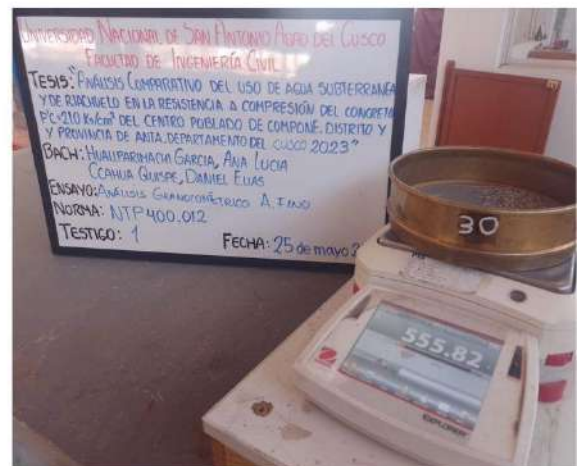 UNIVERSIDAD NACIONAL DE SAN ANTONIO ABAD DEL CUSCO
FACULTAD DE INGENIERÍA CIVIL
TESIS: "ANÁLISIS COMPARATIVO DEL USO DE AGUA SUBTERRANEA
Y DE RIACHUELO EN LA RESISTENCIA A COMPRESIÓN DEL CONCRETO
F'C=210 KG/cm² DEL CENTRO POBLADO DE COMPONE, DISTRITO Y
Y PROVINCIA DE ANTA, DEPARTAMENTO DEL CUSCO 2023"
BACH: HUALLPARIMACHI GARCIA, ANA LUCIA
CCAHUA QUISPE, DANIEL ELIAS
ENSAYO: ANALISIS GRANULOMÉTRICO A. FINO
NORMA: NTP 400.012
TESTIGO: 1
FECHA: 25 de mayo
30
555.82
EXPLORER